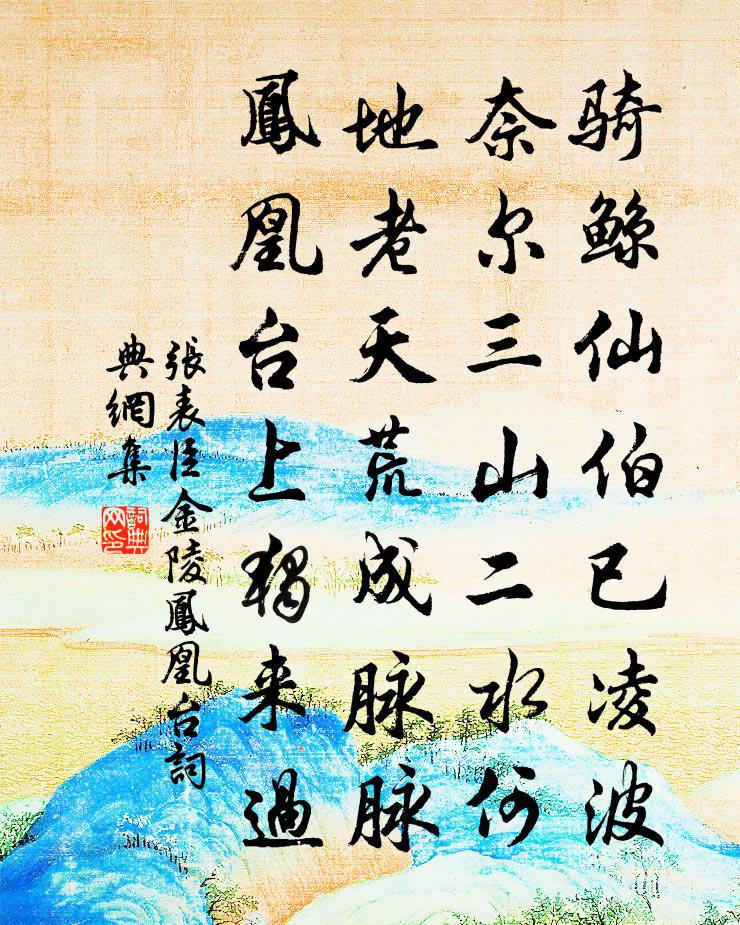 骑鲸仙伯已凌波
奈尔三山二水何
地老天荒成脉脉
鳳凰台上獨来過
張表臣金陵鳳凰台詞
典網集
詞典
网印